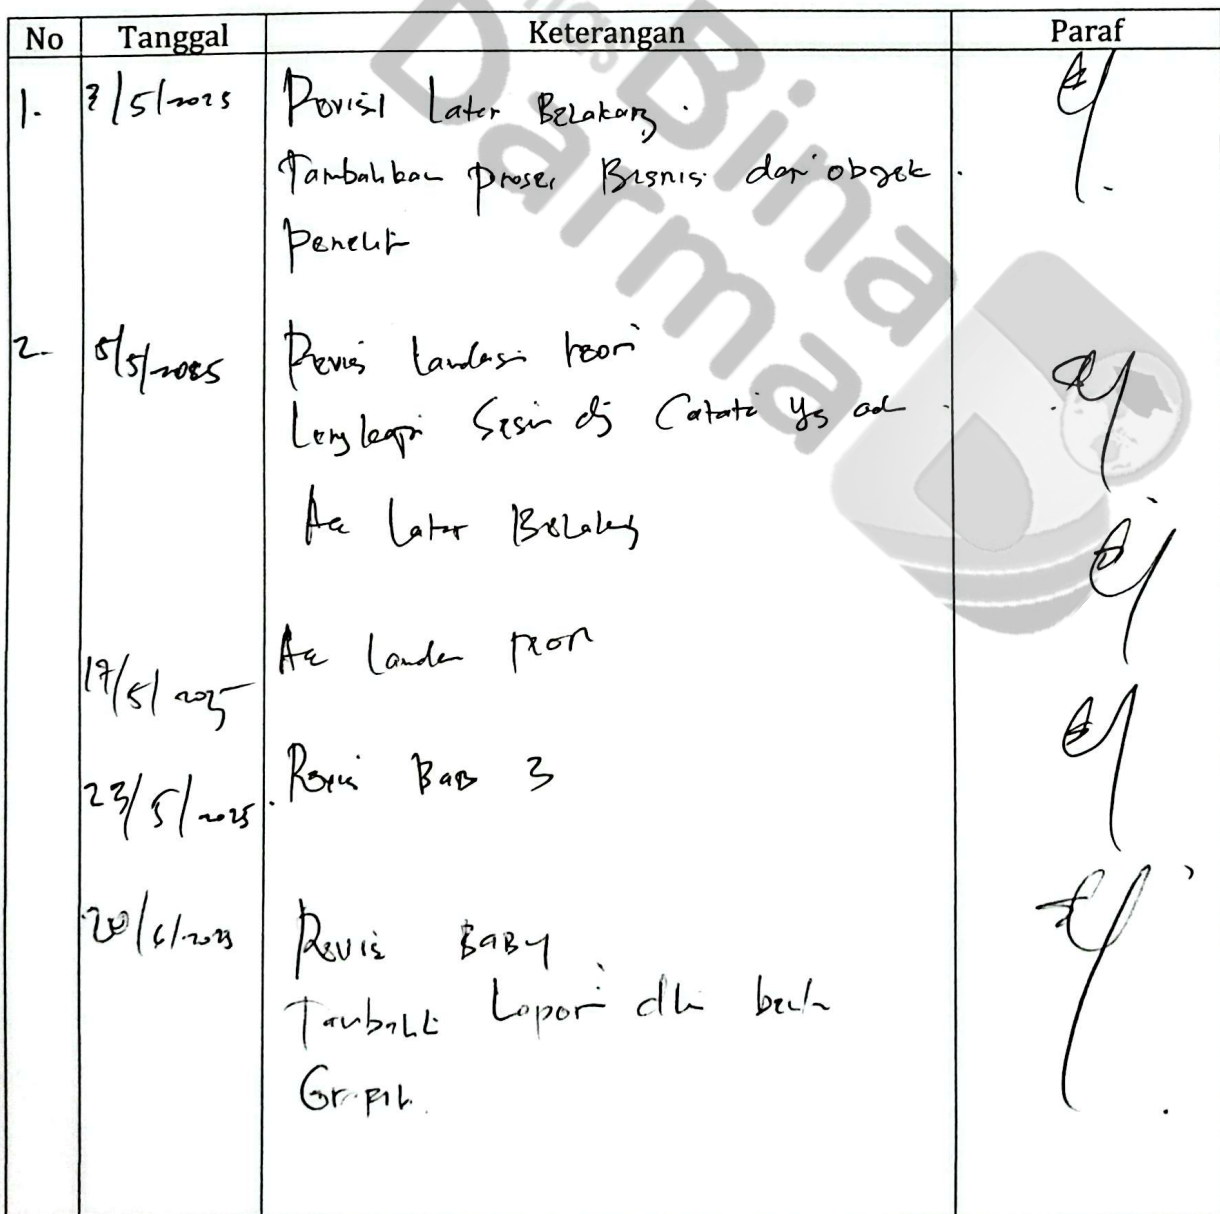 No Tanggal Keterangan Paraf
1. /5/2025 Revisi Latar Belakang.
Tambahkan proses Bisnis dari obyek
Penelit
2. 8/5/2025 Revisi Landasan teori
Lengkapi Sesuai dg Catatan yg ad
Acc Latar Belakang
Acc Landasan teori
17/5/2025
Revisi Bab 3
23/5/2025
20/6/2025 Revisi Bab 4
Tambahkan Laporan dlm bentuk
Grafik.
Bina
Darma